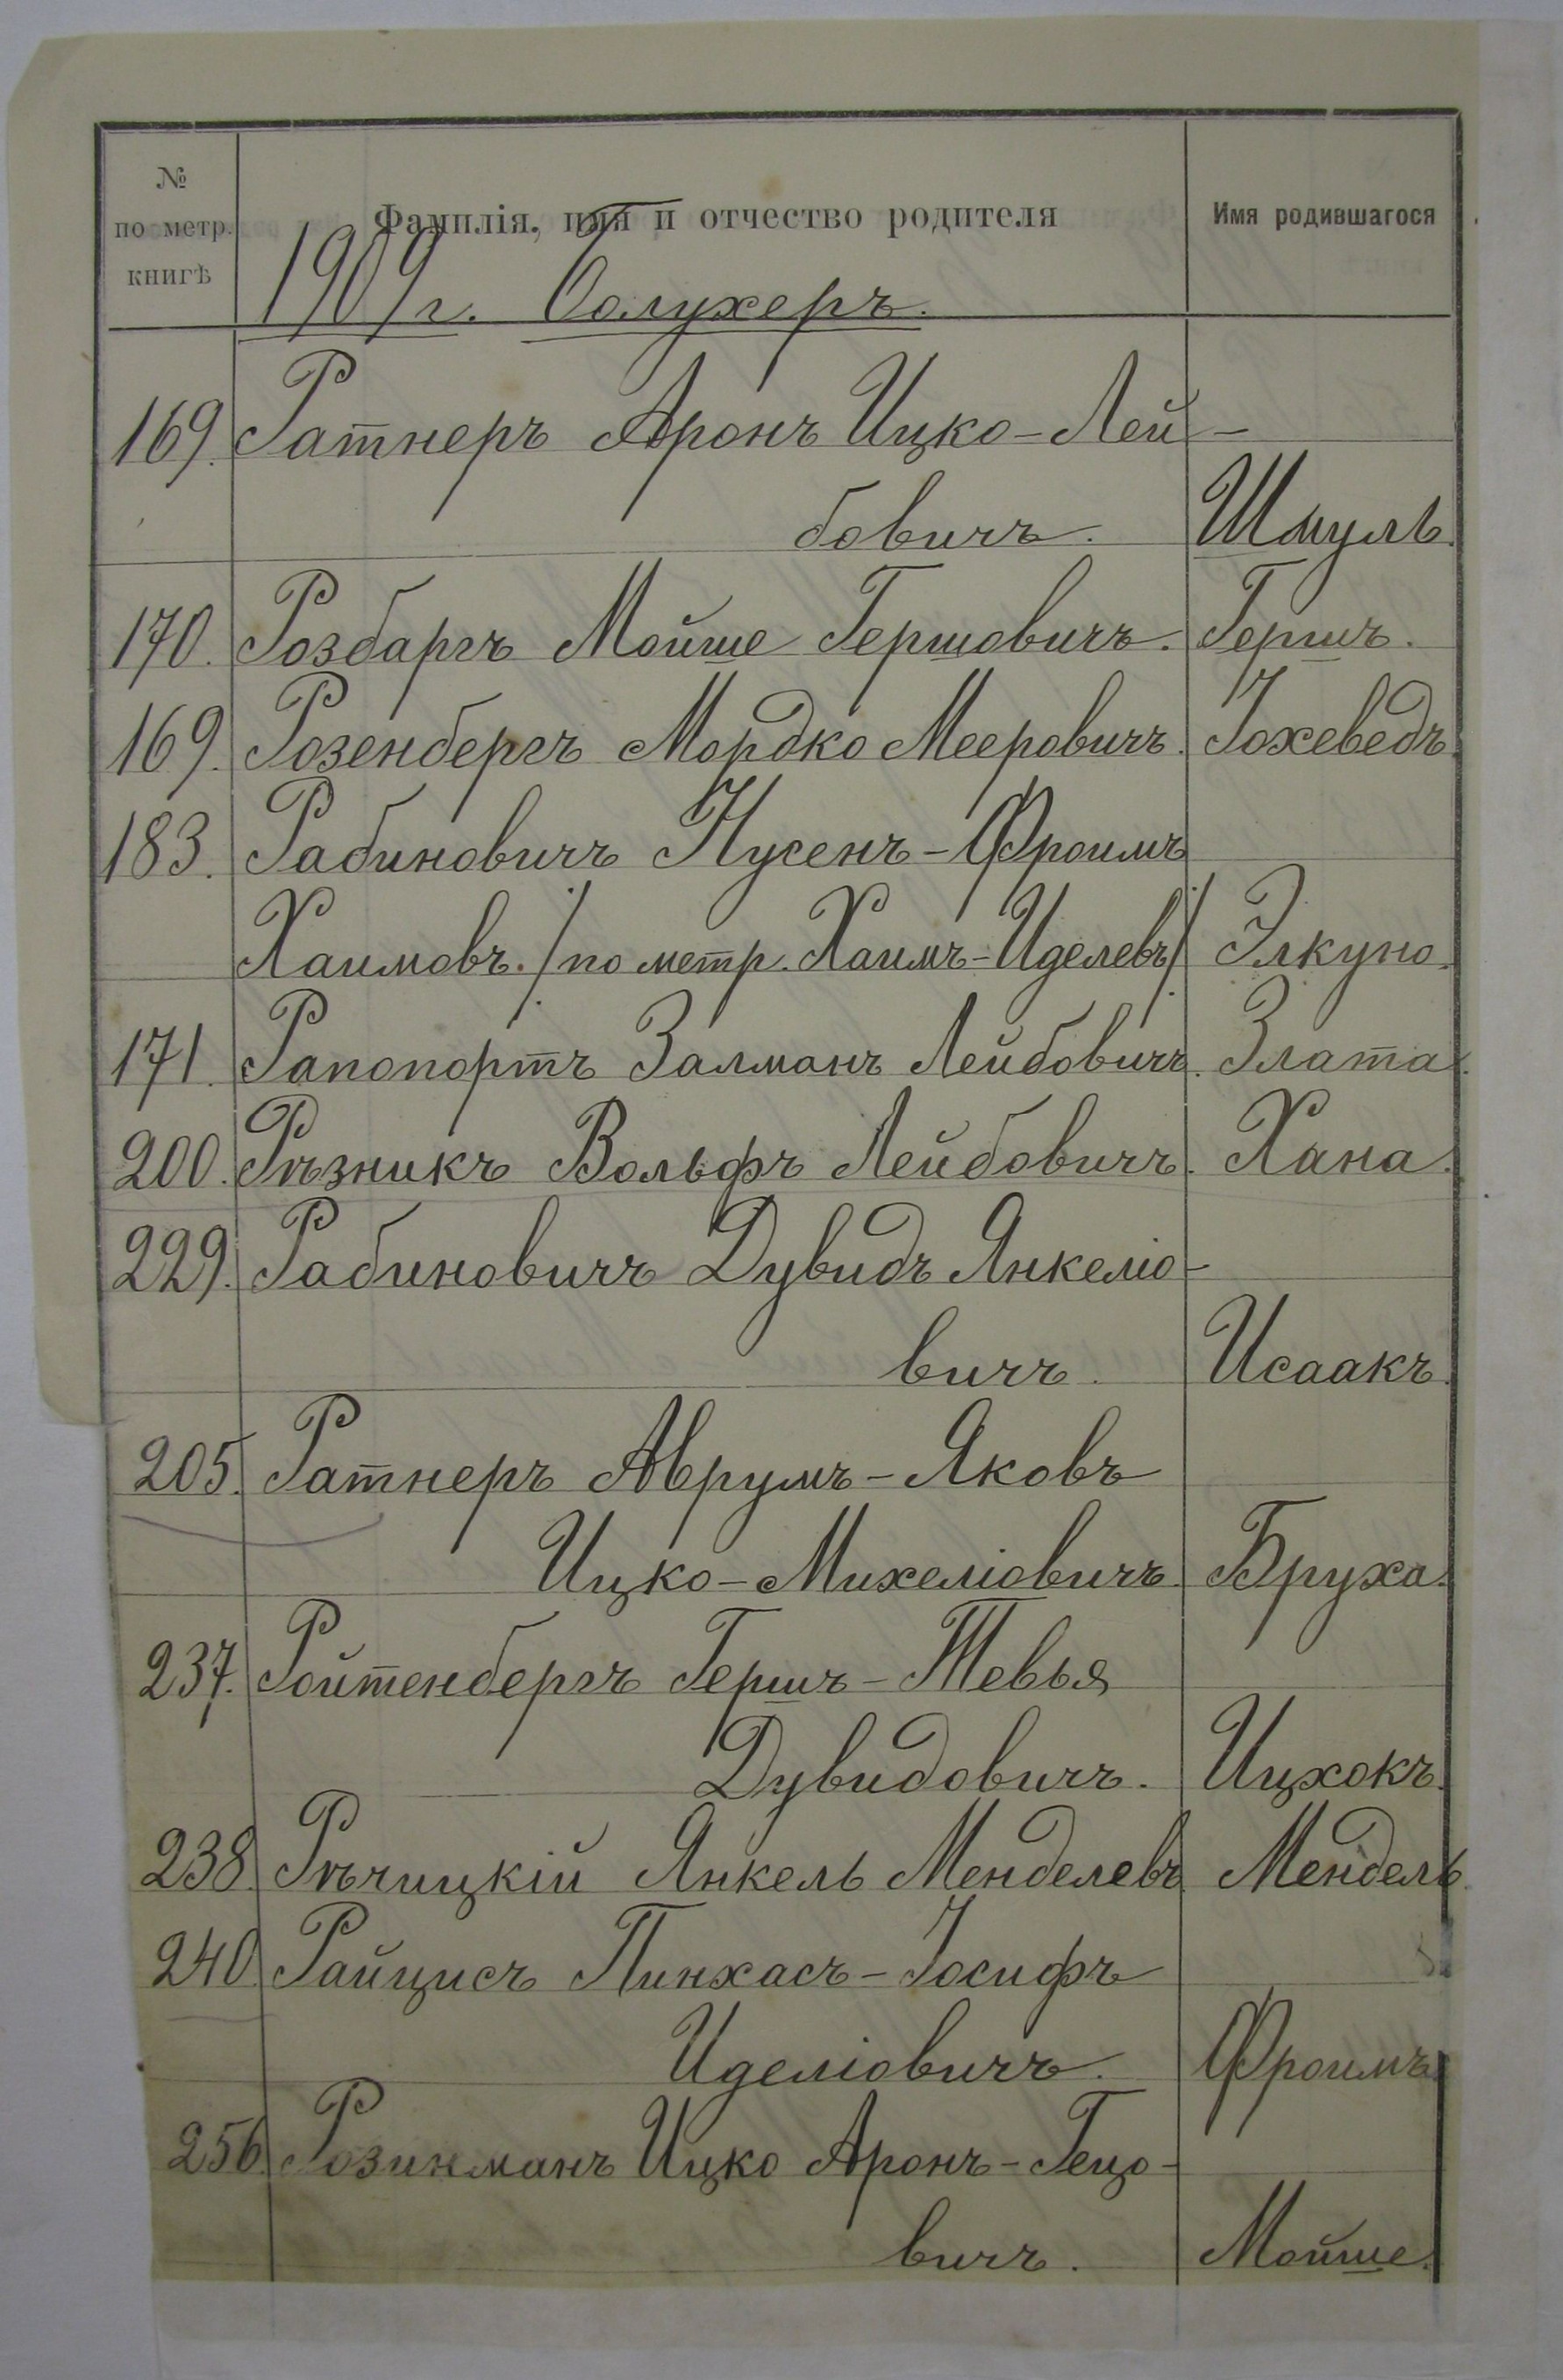 №
по метр.
книгѣ
Фамилія, имя и отчество родителя
Имя родившагося
1909 г.
169. Ратнеръ Аронъ Ицко-Лей-
бовичъ. Шмуль.
170. Розбаргъ Мойше Гершовичъ. Гершъ.
169. Розенбергъ Мордко Мееровичъ. Іохеведъ.
183. Рабиновичъ Нусенъ-Фроимъ
Хаимовъ. /по метр. Хаимъ-Иделевъ/ Элкуно.
171. Рапопортъ Залманъ Лейбовичъ. Злата.
200. Рѣзникъ Вольфъ Лейбовичъ. Хана.
229. Рабиновичъ Дувидъ Янкеліо-
вичъ. Исаакъ.
205. Ратнеръ Аврумъ-Яковъ
Ицко-Михеліовичъ. Бруха.
237. Ройтенбергъ Гершъ-Тевья
Дувидовичъ. Ицхокъ.
238. Рѣчицкій Янкель Менделевъ Мендель.
240. Райцисъ Пинхасъ-Іосифъ
Иделіовичъ. Фроимъ.
256. Розинманъ Ицко Аронъ-Гецо-
вичъ. Мойше.